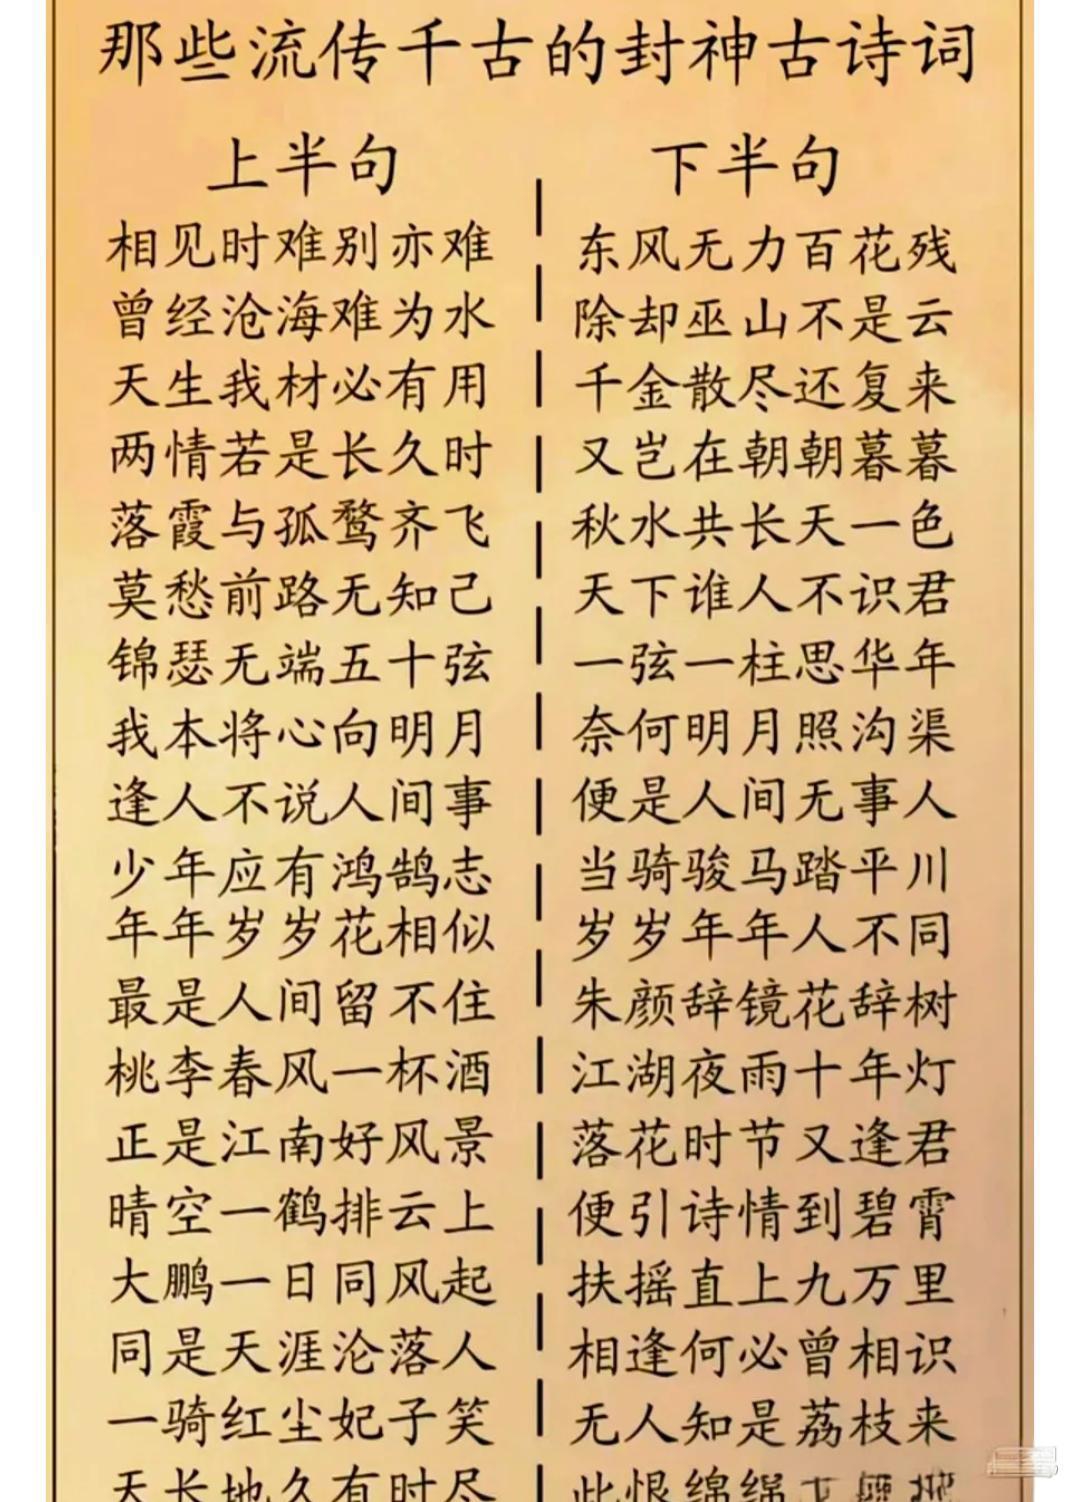 那些流传千古的封神古诗词
上半句 下半句
相见时难别亦难 东风无力百花残
曾经沧海难为水 除却巫山不是云
天生我材必有用 千金散尽还复来
两情若是长久时 又岂在朝朝暮暮
落霞与孤鹜齐飞 秋水共长天一色
莫愁前路无知己 天下谁人不识君
锦瑟无端五十弦 一弦一柱思华年
我本将心向明月 奈何明月照沟渠
逢人不说人间事 便是人间无事人
少年应有鸿鹄志 当骑骏马踏平川
年年岁岁花相似 岁岁年年人不同
最是人间留不住 朱颜辞镜花辞树
桃李春风一杯酒 江湖夜雨十年灯
正是江南好风景 落花时节又逢君
晴空一鹤排云上 便引诗情到碧霄
大鹏一日同风起 扶摇直上九万里
同是天涯沦落人 相逢何必曾相识
一骑红尘妃子笑 无人知是荔枝来
天长地久有时尽 此恨绵绵